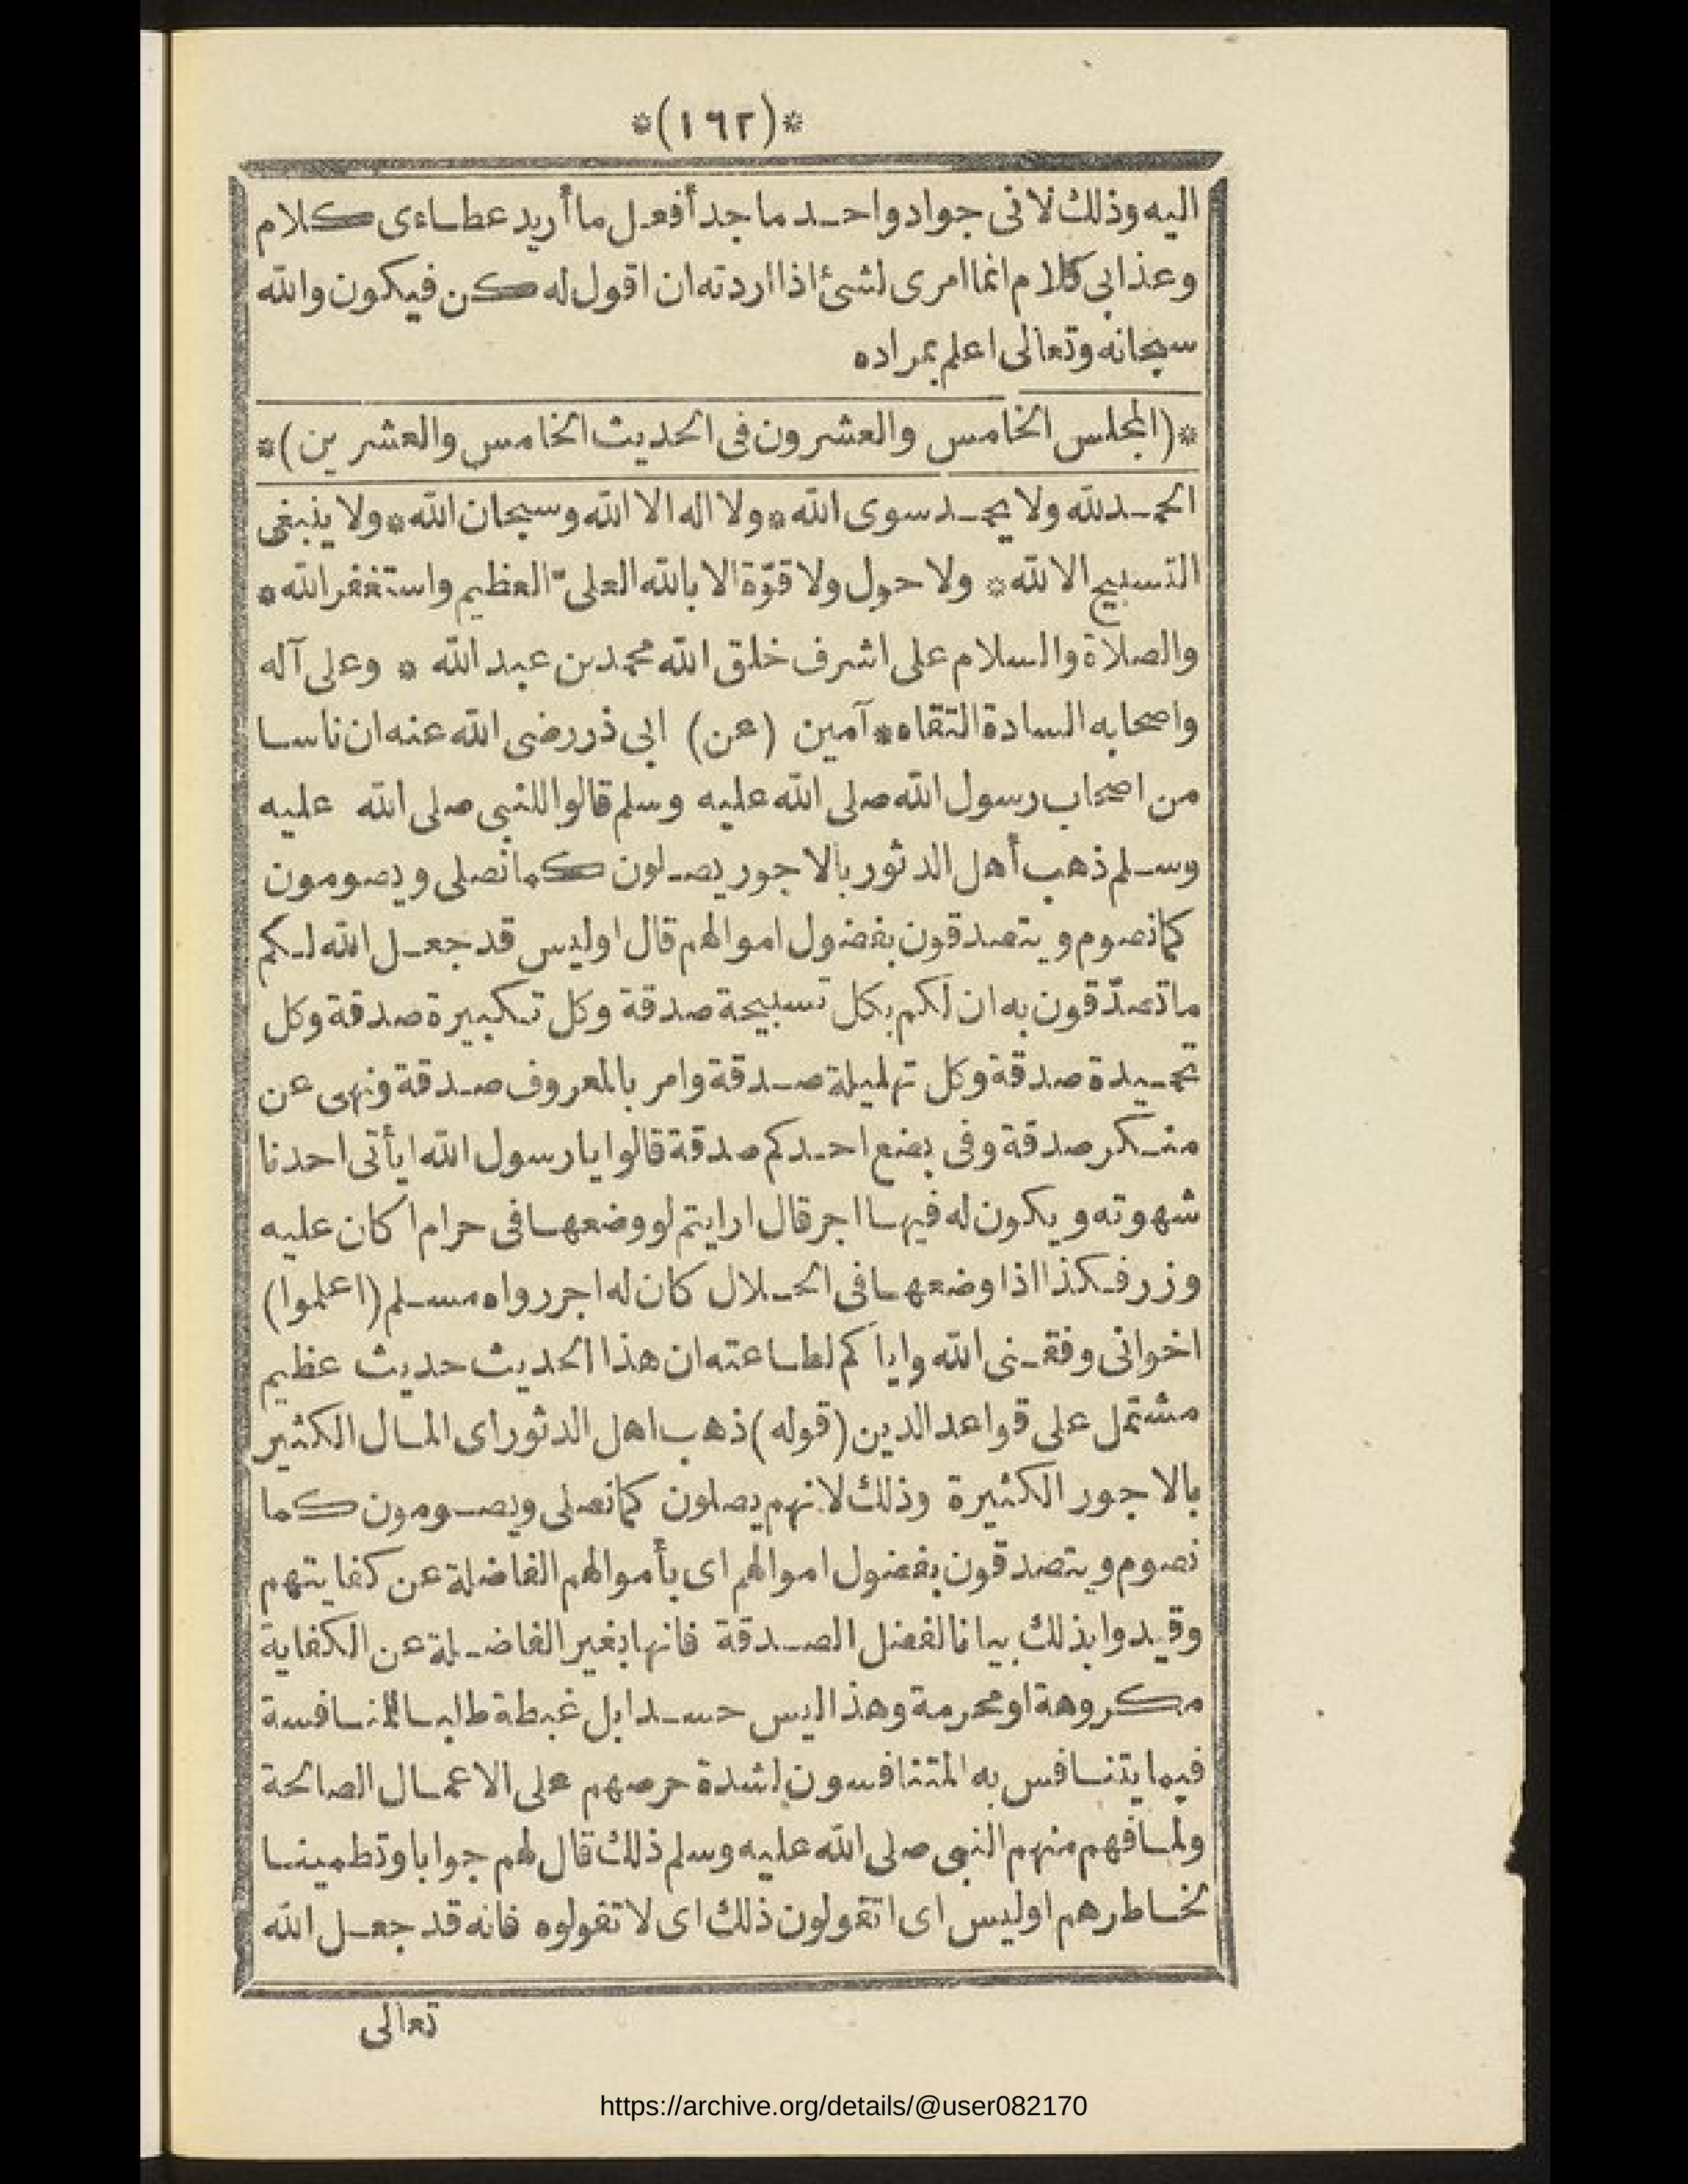 *(١٦٢)*
اليه وذلك لانى جواد واحد ماجد أفعل ما أريد عطاءى كلام
وعذابى كلام انما امرى لشئ اذا اردته ان اقول له كن فيكون والله
سبحانه وتعالى اعلم بمراده
*(المجلس الخامس والعشرون فى الحديث الخامس والعشرين)*
الحمد لله ولا يحمد سوى الله * ولا اله الا الله وسبحان الله * ولا ينبغى
التسبيح الا لله * ولا حول ولا قوّة الا بالله العلىّ العظيم واستغفر الله *
والصلاة والسلام على اشرف خلق الله محمد بن عبد الله * وعلى آله
واصحابه السادة التقاه * آمين (عن) ابى ذر رضى الله عنه ان ناسا
من اصحاب رسول الله صلى الله عليه وسلم قالوا للنبى صلى الله عليه
وسلم ذهب أهل الدثور بالاجور يصلون كما نصلى ويصومون
كما نصوم ويتصدقون بفضول اموالهم قال اوليس قد جعل الله لكم
ما تصدّقون به ان لكم بكل تسبيحة صدقة وكل تكبيرة صدقة وكل
تحميدة صدقة وكل تهليلة صدقة وامر بالمعروف صدقة ونهى عن
منكر صدقة وفى بضع احدكم صدقة قالوا يا رسول الله ايأتى احدنا
شهوته ويكون له فيها اجر قال ارايتم لو وضعها فى حرام اكان عليه
وزر فكذا اذا وضعها فى الحلال كان له اجر رواه مسلم (اعلموا)
اخوانى وفقنى الله واياكم لطاعته ان هذا الحديث حديث عظيم
مشتمل على قواعد الدين (قوله) ذهب اهل الدثور اى المال الكثير
بالاجور الكثيرة وذلك لانهم يصلون كما نصلى ويصومون كما
نصوم ويتصدقون بفضول اموالهم اى بأموالهم الفاضلة عن كفايتهم
وقيدوا بذلك بيانا لفضل الصدقة فانها بغير الفاضلة عن الكفاية
مكروهة او محرمة وهذا ليس حسدا بل غبطة طلبا للمنافسة
فيما يتنافس به المتنافسون لشدة حرصهم على الاعمال الصالحة
ولما فهم منهم النبى صلى الله عليه وسلم ذلك قال لهم جوابا وتطمينا
لخاطرهم اوليس اى اتقولون ذلك اى لا تقولوه فانه قد جعل الله
تعالى
https://archive.org/details/@user082170